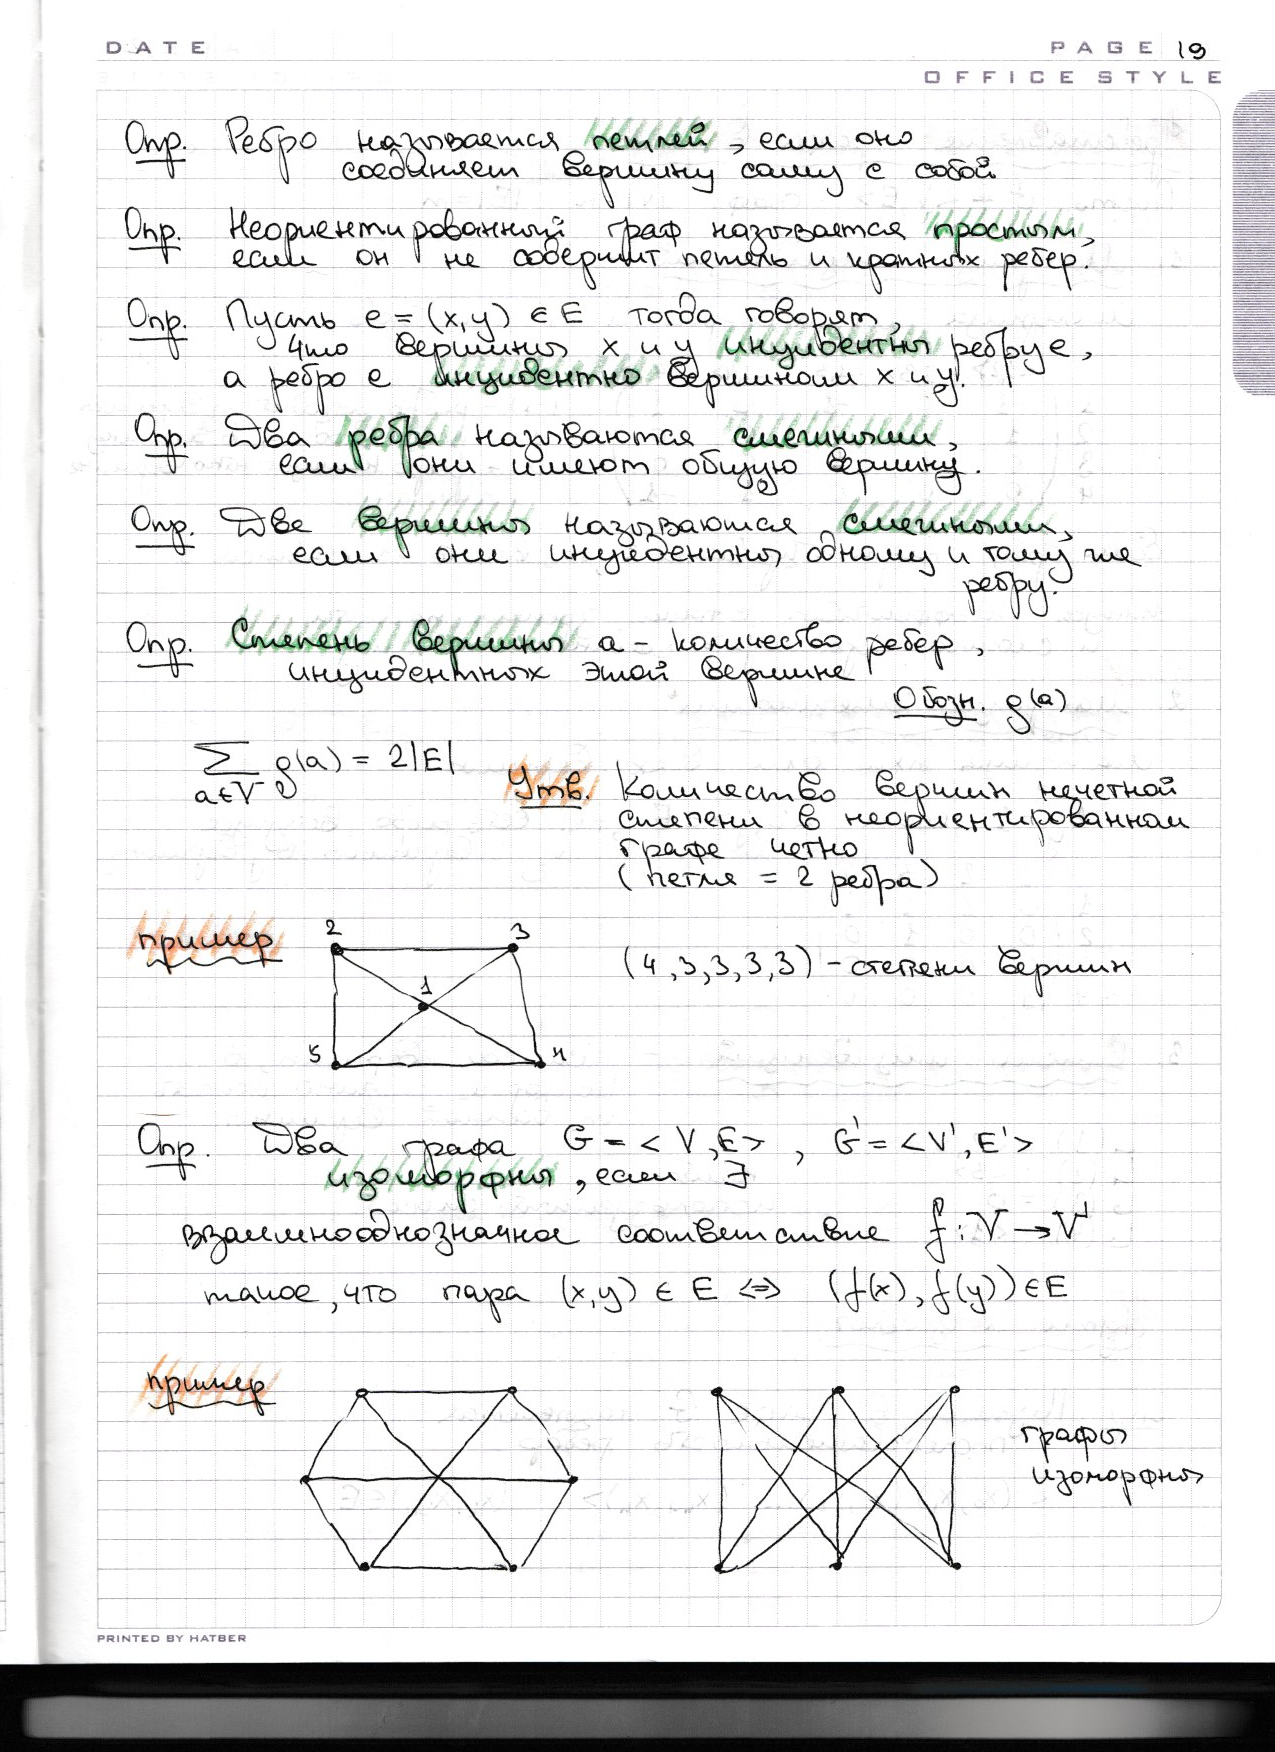 DATE
PAGE 19
OFFICE STYLE
Опр. Ребро называется петлей, если оно
соединяет вершину саму с собой
Опр. Неориентированный граф называется простым,
если он не содержит петель и кратных ребер.
Опр. Пусть e = (x,y) ∈ E тогда говорят,
что вершины x и y инцидентны ребру e,
а ребро e инцидентно вершинам x и y.
Опр. Два ребра называются смежными,
если они имеют общую вершину.
Опр. Две вершины называются смежными,
если они инцидентны одному и тому же
ребру.
Опр. Степень вершины a - количество ребер,
инцидентных этой вершине
Обозн. ρ(a)
∑ ρ(a) = 2|E|
a∈V
Утв. Количество вершин нечетной
степени в неориентированном
графе четно
(петля = 2 ребра)
пример
2 3
1
5 4
(4,3,3,3,3) - степени вершин
Опр. Два графа G = <V,E>, G' = <V',E'>
изоморфны, если ∃
взаимнооднозначное соответствие f: V → V'
такое, что пара (x,y) ∈ E ⇔ (f(x), f(y)) ∈ E
пример
графы
изоморфны
PRINTED BY HATBER